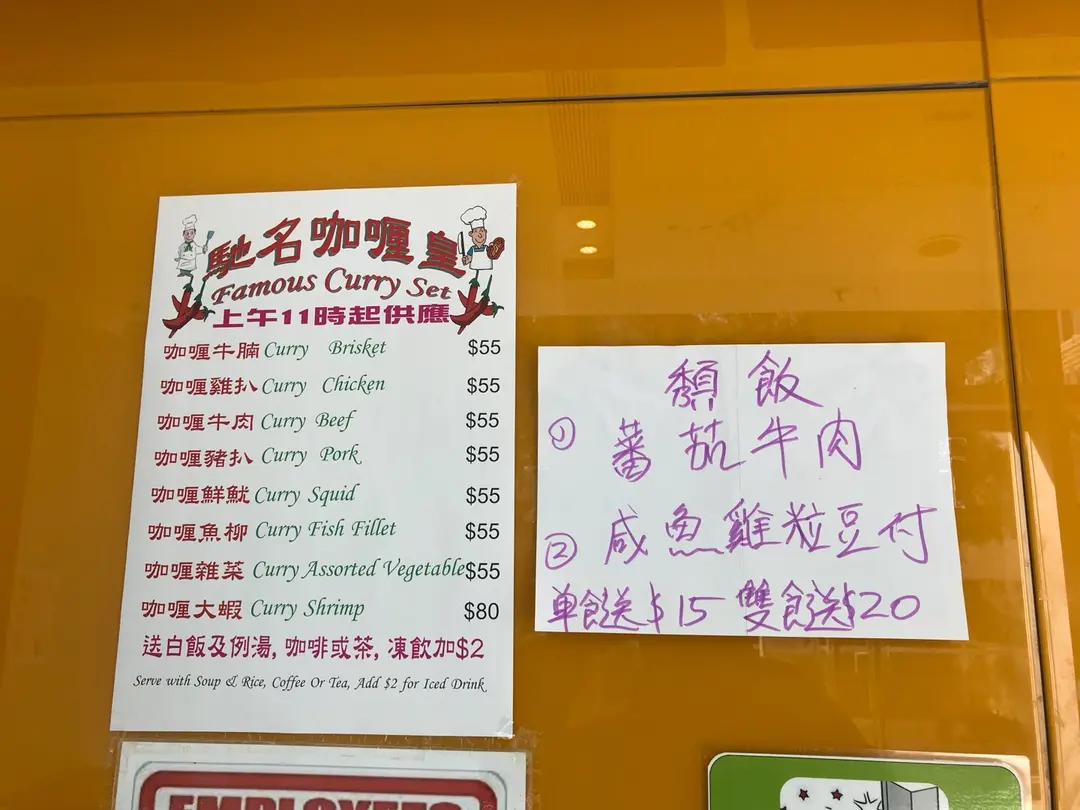 馳名咖喱皇
Famous Curry Set
上午11時起供應
咖喱牛腩 Curry Brisket $55
咖喱雞扒 Curry Chicken $55
咖喱牛肉 Curry Beef $55
咖喱豬扒 Curry Pork $55
咖喱鮮魷 Curry Squid $55
咖喱魚柳 Curry Fish Fillet $55
咖喱雜菜 Curry Assorted Vegetable $55
咖喱大蝦 Curry Shrimp $80
送白飯及例湯, 咖啡或茶, 凍飲加$2
Serve with Soup & Rice, Coffee Or Tea, Add $2 for Iced Drink
飯
① 蕃茄牛肉
② 咸魚雞粒豆付
单餸 $15 雙餸 $20
EMPLOYEES